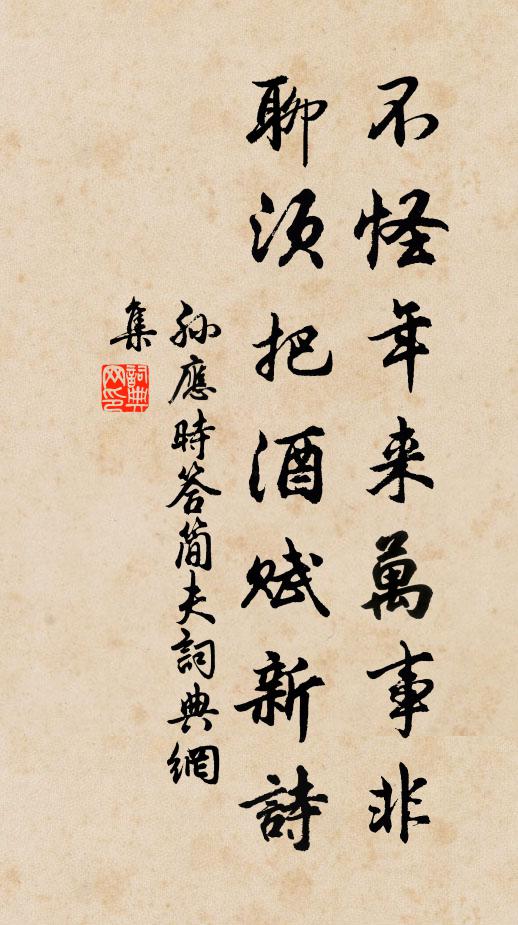 不怪年来萬事非
聊須把酒賦新詩
孙應時答簡夫詞典網
集
詞典網印